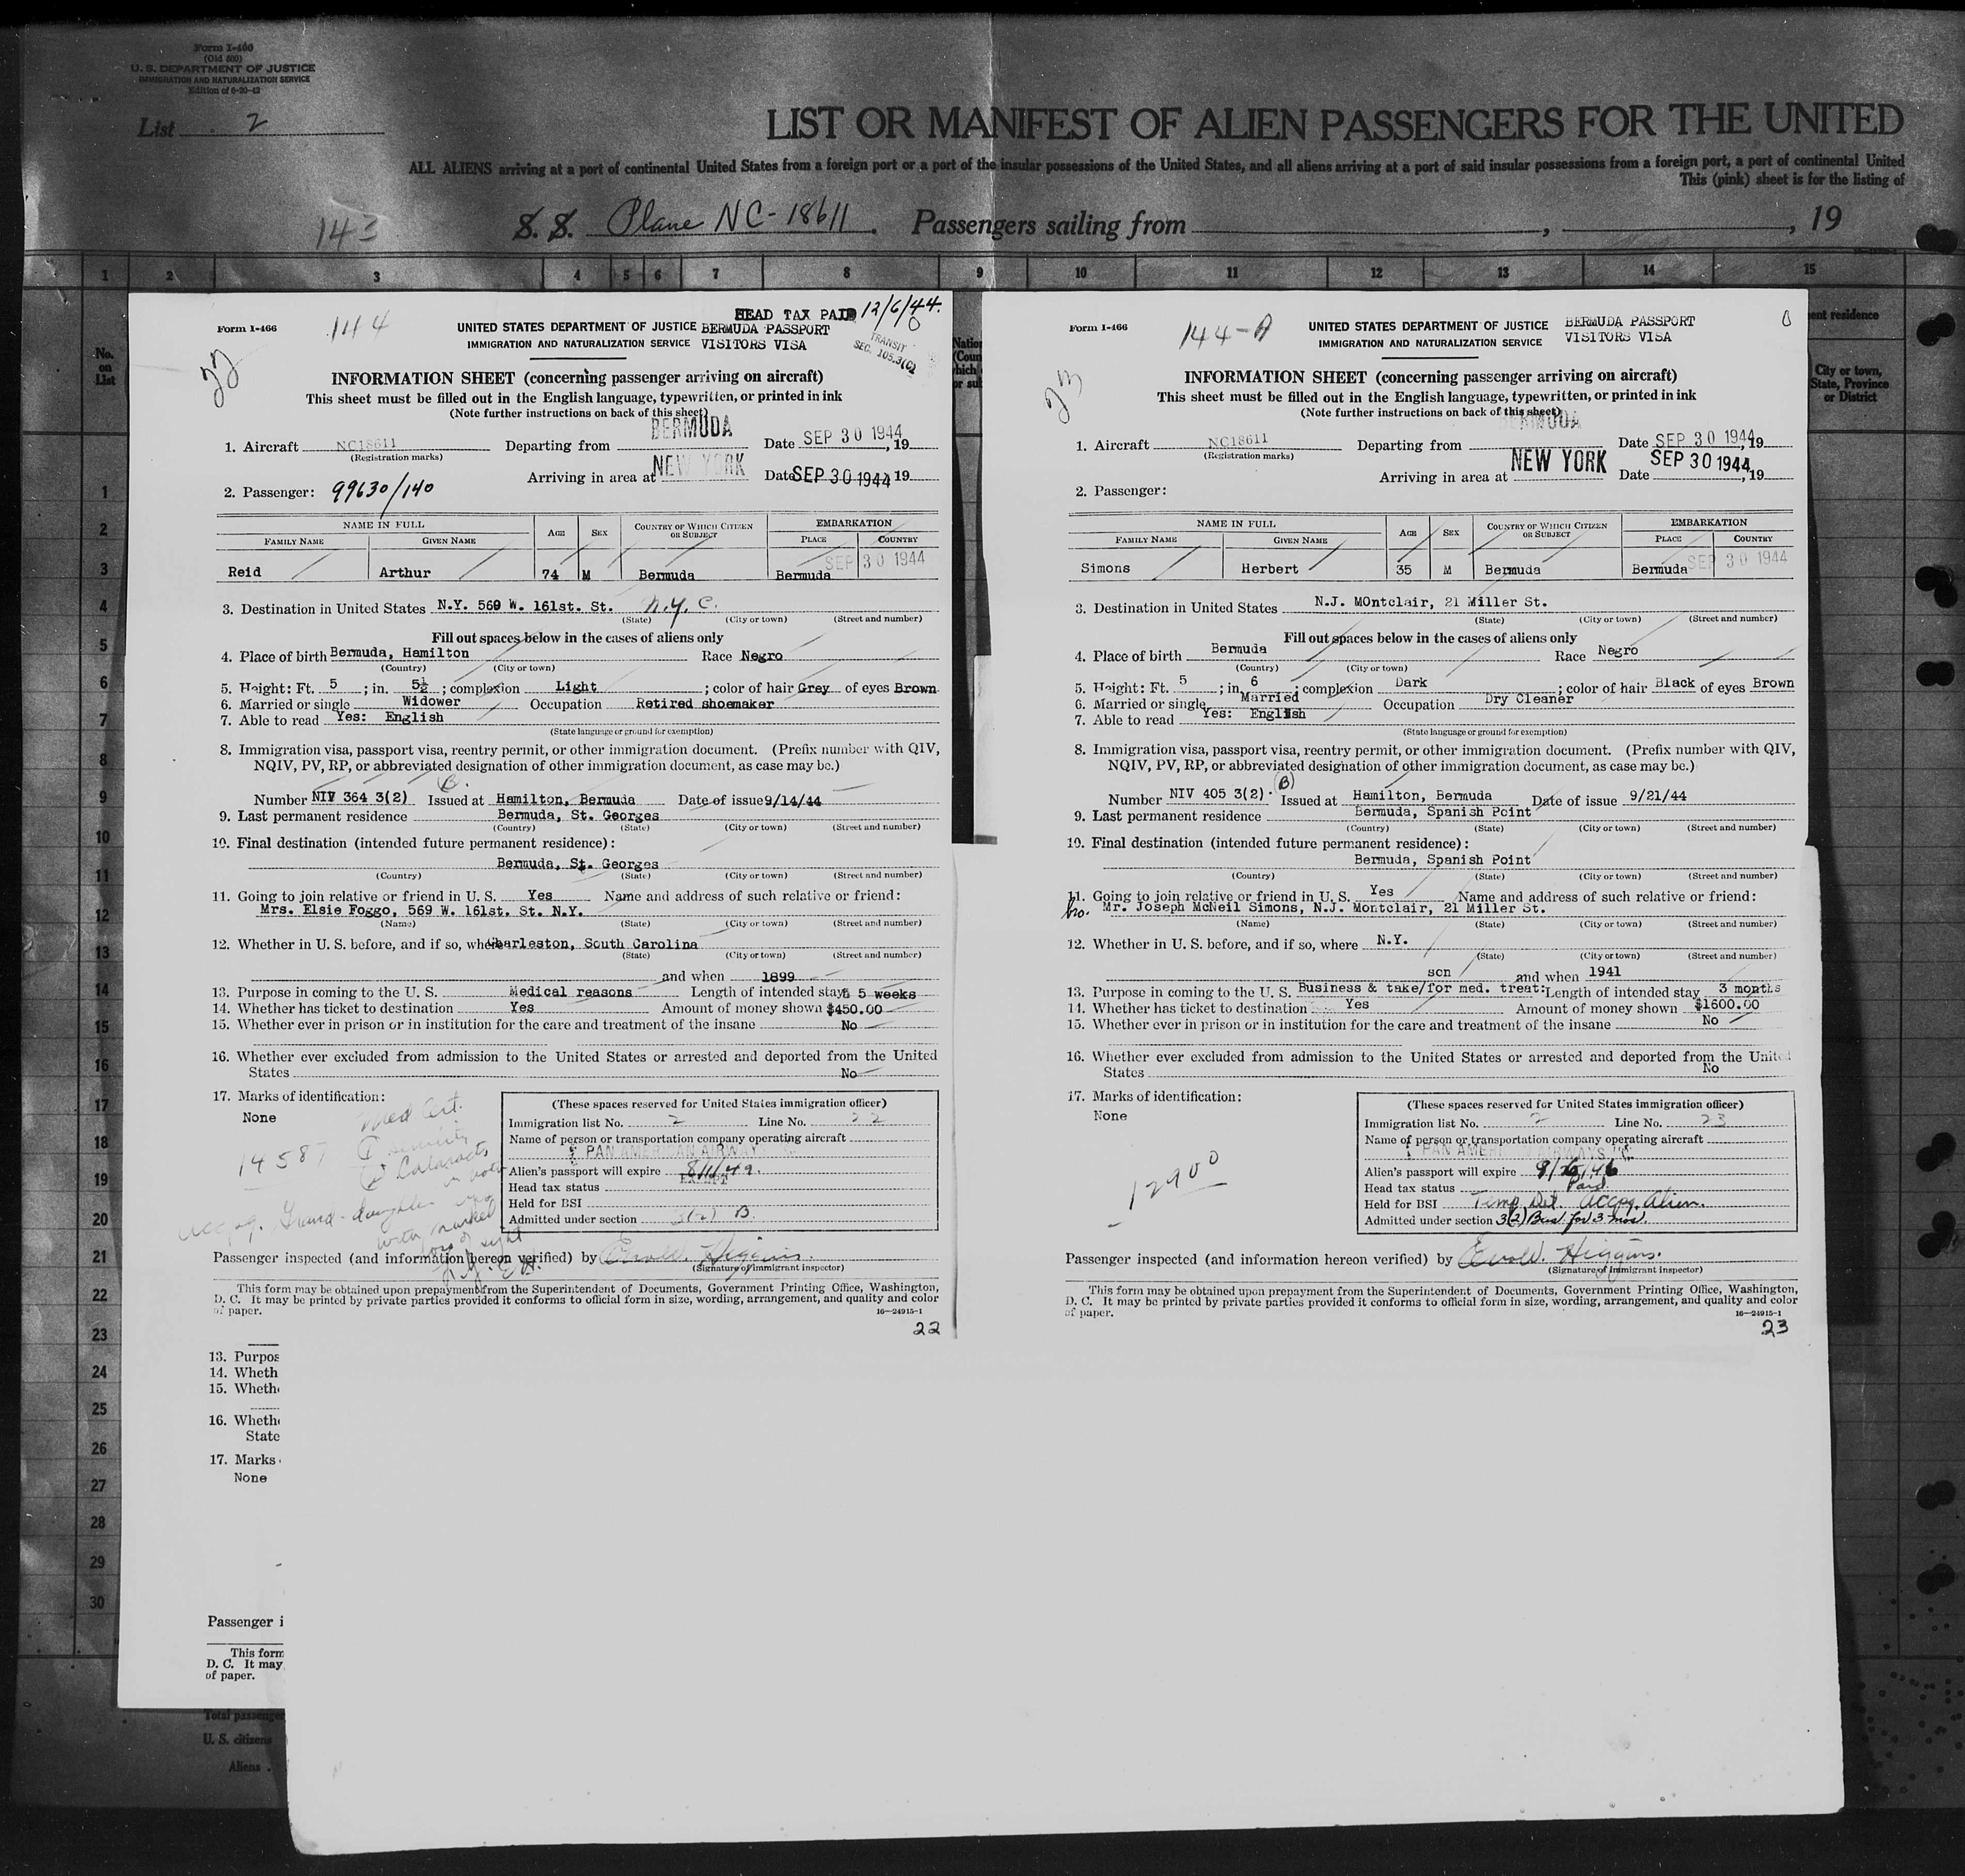 Form I-466
(Old 500)
U. S. DEPARTMENT OF JUSTICE
IMMIGRATION AND NATURALIZATION SERVICE
Edition of 6-20-42
List 2
LIST OR MANIFEST OF ALIEN PASSENGERS FOR THE UNITED
ALL ALIENS arriving at a port of continental United States from a foreign port or a port of the insular possessions of the United States, and all aliens arriving at a port of said insular possessions from a foreign port, a port of continental United
This (pink) sheet is for the listing of
143 S. S. Plane NC-18611. Passengers sailing from , , 19
1 2 3 4 5 6 7 8 9 10 11 12 13 14 15
No.
on
List
1
2
3
4
5
6
7
8
9
10
11
12
13
14
15
16
17
18
19
20
21
22
23
24
25
26
27
28
29
30
ent residence
City or town,
State, Province
or District
Form I-466
144
22
UNITED STATES DEPARTMENT OF JUSTICE
IMMIGRATION AND NATURALIZATION SERVICE
HEAD TAX PAID 12/6/44.
BERMUDA PASSPORT
VISITORS VISA
TRANSIT
SEC. 105.3(C)
INFORMATION SHEET (concerning passenger arriving on aircraft)
This sheet must be filled out in the English language, typewritten, or printed in ink
(Note further instructions on back of this sheet)
1. Aircraft NC18611 Departing from BERMUDA Date SEP 30 1944, 19
(Registration marks)
Arriving in area at NEW YORK Date SEP 30 1944 19
2. Passenger: 99630/140
NAME IN FULL AGE SEX COUNTRY OF WHICH CITIZEN OR SUBJECT EMBARKATION
FAMILY NAME GIVEN NAME PLACE COUNTRY
SEP 30 1944
Reid Arthur 74 M Bermuda Bermuda
3. Destination in United States N.Y. 569 W. 161st. St. N.Y. C.
(State) (City or town) (Street and number)
Fill out spaces below in the cases of aliens only
4. Place of birth Bermuda, Hamilton Race Negro
(Country) (City or town)
5. Height: Ft. 5 ; in. 5½ ; complexion Light ; color of hair Grey of eyes Brown
6. Married or single Widower Occupation Retired shoemaker
7. Able to read Yes: English
(State language or ground for exemption)
8. Immigration visa, passport visa, reentry permit, or other immigration document. (Prefix number with QIV,
NQIV, PV, RP, or abbreviated designation of other immigration document, as case may be.)
Number NIV 364 3(2) Issued at Hamilton, Bermuda Date of issue 9/14/44
9. Last permanent residence Bermuda, St. Georges
(Country) (State) (City or town) (Street and number)
10. Final destination (intended future permanent residence):
Bermuda, St. Georges
(Country) (State) (City or town) (Street and number)
11. Going to join relative or friend in U. S. Yes Name and address of such relative or friend:
Mrs. Elsie Foggo, 569 W. 161st. St. N.Y.
(Name) (State) (City or town) (Street and number)
12. Whether in U. S. before, and if so, where Charleston, South Carolina
(State) (City or town) (Street and number)
and when 1899
13. Purpose in coming to the U. S. Medical reasons Length of intended stay 5 weeks
14. Whether has ticket to destination Yes Amount of money shown $450.00
15. Whether ever in prison or in institution for the care and treatment of the insane No
16. Whether ever excluded from admission to the United States or arrested and deported from the United
States No
17. Marks of identification:
None
Med Cert.
1 senility
14587
2 Cataracts
in both
eyes
with marked
loss of sight
accpg. Grand-daughter
(These spaces reserved for United States immigration officer)
Immigration list No. 2 Line No. 22
Name of person or transportation company operating aircraft
PAN AMERICAN AIRWAYS
Alien's passport will expire 8/11/49.
Head tax status EXEMPT
Held for BSI
Admitted under section 3(2) B.
Passenger inspected (and information hereon verified) by Ewold. Higgins.
(Signature of immigrant inspector)
This form may be obtained upon prepayment from the Superintendent of Documents, Government Printing Office, Washington,
D. C. It may be printed by private parties provided it conforms to official form in size, wording, arrangement, and quality and color
of paper.
16—24915-1
22
Form I-466
144-A
23
UNITED STATES DEPARTMENT OF JUSTICE
IMMIGRATION AND NATURALIZATION SERVICE
BERMUDA PASSPORT
VISITORS VISA
INFORMATION SHEET (concerning passenger arriving on aircraft)
This sheet must be filled out in the English language, typewritten, or printed in ink
(Note further instructions on back of this sheet)
1. Aircraft NC18611 Departing from BERMUDA Date SEP 30 1944, 19
(Registration marks)
Arriving in area at NEW YORK Date SEP 30 1944, 19
2. Passenger:
NAME IN FULL AGE SEX COUNTRY OF WHICH CITIZEN OR SUBJECT EMBARKATION
FAMILY NAME GIVEN NAME PLACE COUNTRY
SEP 30 1944
Simons Herbert 35 M Bermuda Bermuda
3. Destination in United States N.J. MOntclair, 21 Miller St.
(State) (City or town) (Street and number)
Fill out spaces below in the cases of aliens only
4. Place of birth Bermuda Race Negro
(Country) (City or town)
5. Height: Ft. 5 ; in. 6 ; complexion Dark ; color of hair Black of eyes Brown
6. Married or single Married Occupation Dry Cleaner
7. Able to read Yes: English
(State language or ground for exemption)
8. Immigration visa, passport visa, reentry permit, or other immigration document. (Prefix number with QIV,
NQIV, PV, RP, or abbreviated designation of other immigration document, as case may be.)
Number NIV 405 3(2). (B) Issued at Hamilton, Bermuda Date of issue 9/21/44
9. Last permanent residence Bermuda, Spanish Point
(Country) (State) (City or town) (Street and number)
10. Final destination (intended future permanent residence):
Bermuda, Spanish Point
(Country) (State) (City or town) (Street and number)
11. Going to join relative or friend in U. S. Yes Name and address of such relative or friend:
bro. Mr. Joseph McNeil Simons, N.J. Montclair, 21 Miller St.
(Name) (State) (City or town) (Street and number)
12. Whether in U. S. before, and if so, where N.Y.
(State) (City or town) (Street and number)
son and when 1941
13. Purpose in coming to the U. S. Business & take/for med. treat. Length of intended stay 3 months
14. Whether has ticket to destination Yes Amount of money shown $1600.00
15. Whether ever in prison or in institution for the care and treatment of the insane No
16. Whether ever excluded from admission to the United States or arrested and deported from the United
States No
17. Marks of identification:
None
12900
(These spaces reserved for United States immigration officer)
Immigration list No. 2 Line No. 23
Name of person or transportation company operating aircraft
PAN AMERICAN AIRWAYS
Alien's passport will expire 9/26/46
Head tax status Paid
Held for BSI Temp Det. Accpg. Alien.
Admitted under section 3(2) Bus for 3 mos.
Passenger inspected (and information hereon verified) by Ewold. Higgins.
(Signature of immigrant inspector)
This form may be obtained upon prepayment from the Superintendent of Documents, Government Printing Office, Washington,
D. C. It may be printed by private parties provided it conforms to official form in size, wording, arrangement, and quality and color
of paper.
16—24915-1
23
13. Purpos
14. Wheth
15. Wheth
16. Wheth
State
17. Marks
None
Passenger i
This form
D. C. It may
of paper.
Total passenger
U. S. citizens
Aliens